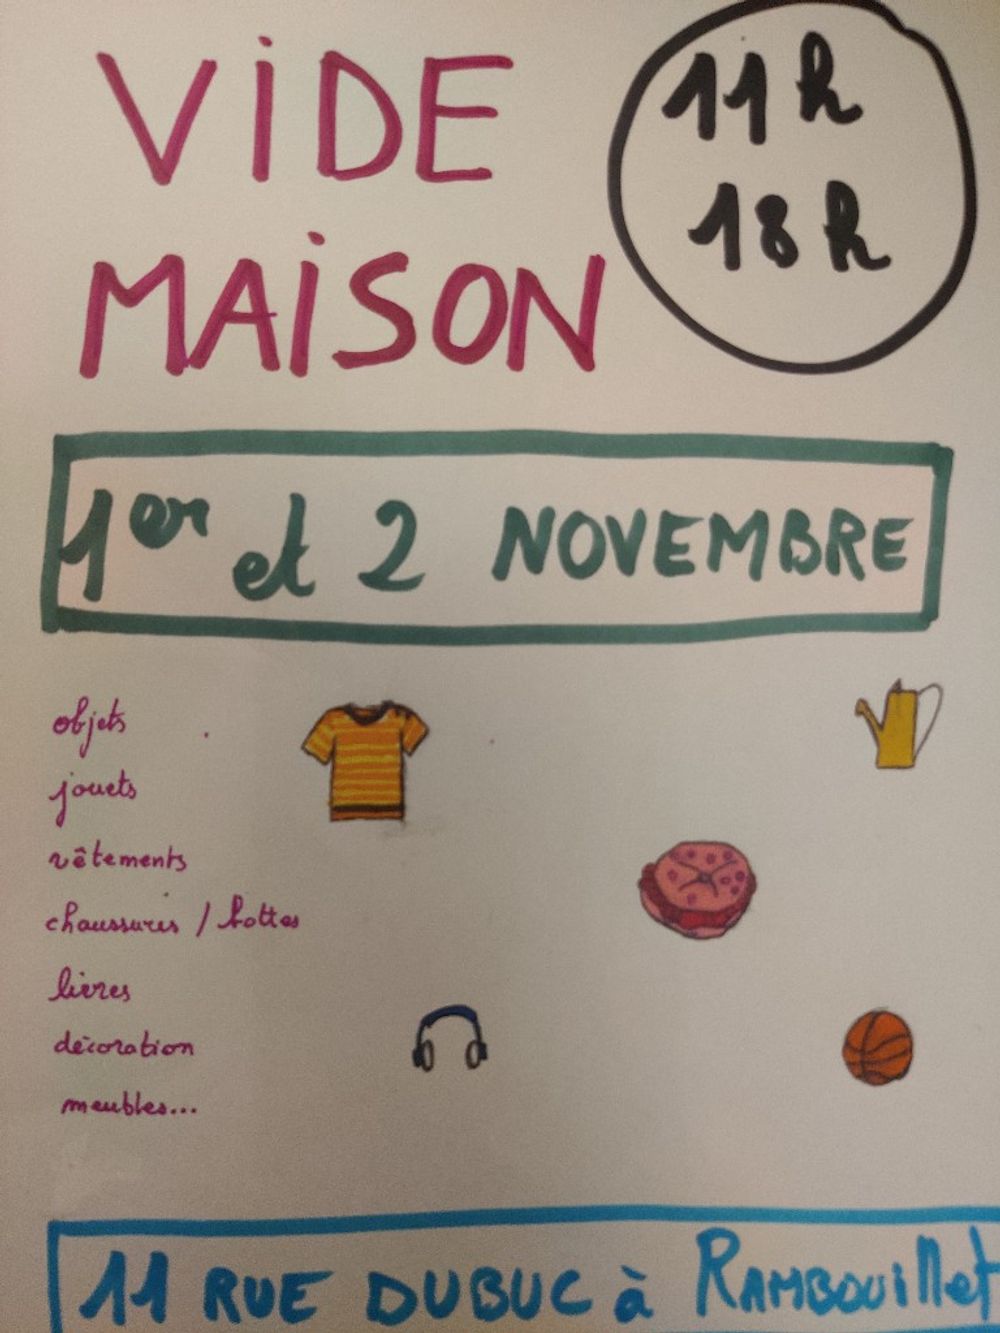 VIDE
MAISON
11h
18h
1er et 2 NOVEMBRE
objets
jouets
vêtements
chaussures / bottes
livres
décoration
meubles...
11 RUE DUBUC à RAMBOUillet